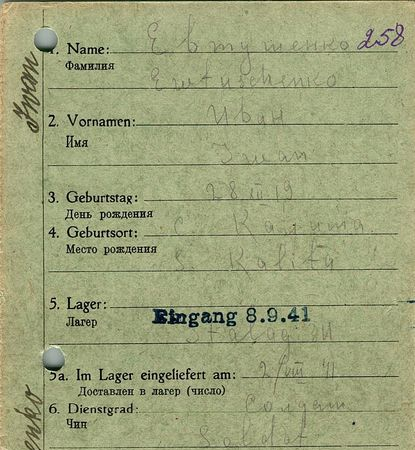 258
1. Name: Евтушенко
Фамилия
Ewtuschenko
2. Vornamen: Иван
Имя
Iwan
3. Geburtstag: 28.III.19
День рождения
4. Geburtsort: с.
Место рождения
S. Kalita
5. Lager:
Лагер
Eingang 8.9.41
Stalag
5a. Im Lager eingeliefert am: 2/VIII 41
Доставлен в лагер (число)
6. Dienstgrad: Солдат
Чин
Soldat
Iwan
enko